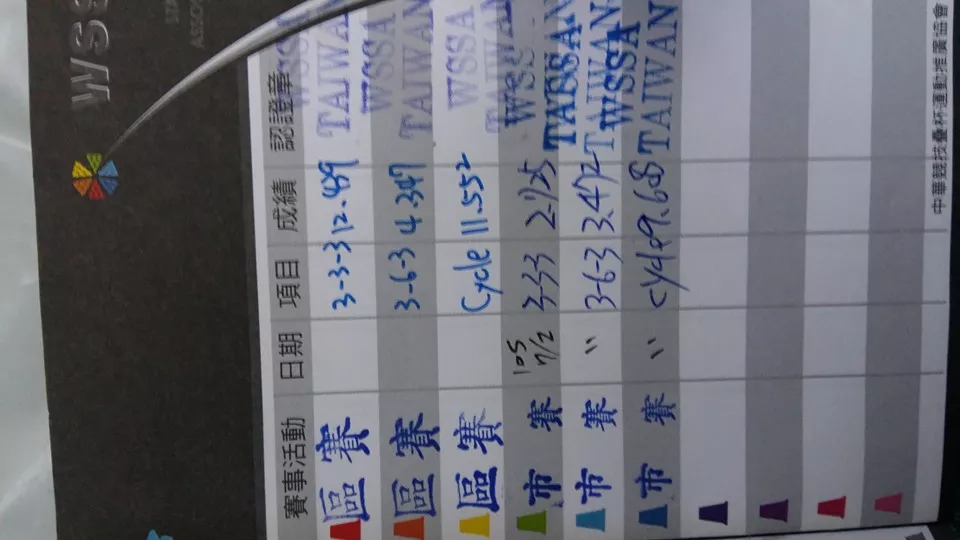 WSS
賽事活動 日期 項目 成績 認證章
區賽 3-3-3 12.489 WSSA TAIWAN
區賽 3-6-3 4.347 WSSA TAIWAN
區賽 Cycle 11.552 WSSA TAIWAN
市賽 105 7/2 3-3-3 2.725 WSS
市賽 〃 3-6-3 3.472 TAIWAN
市賽 〃 cycle 9.608 WSSA TAIWAN
中華競技疊杯運動推廣協會